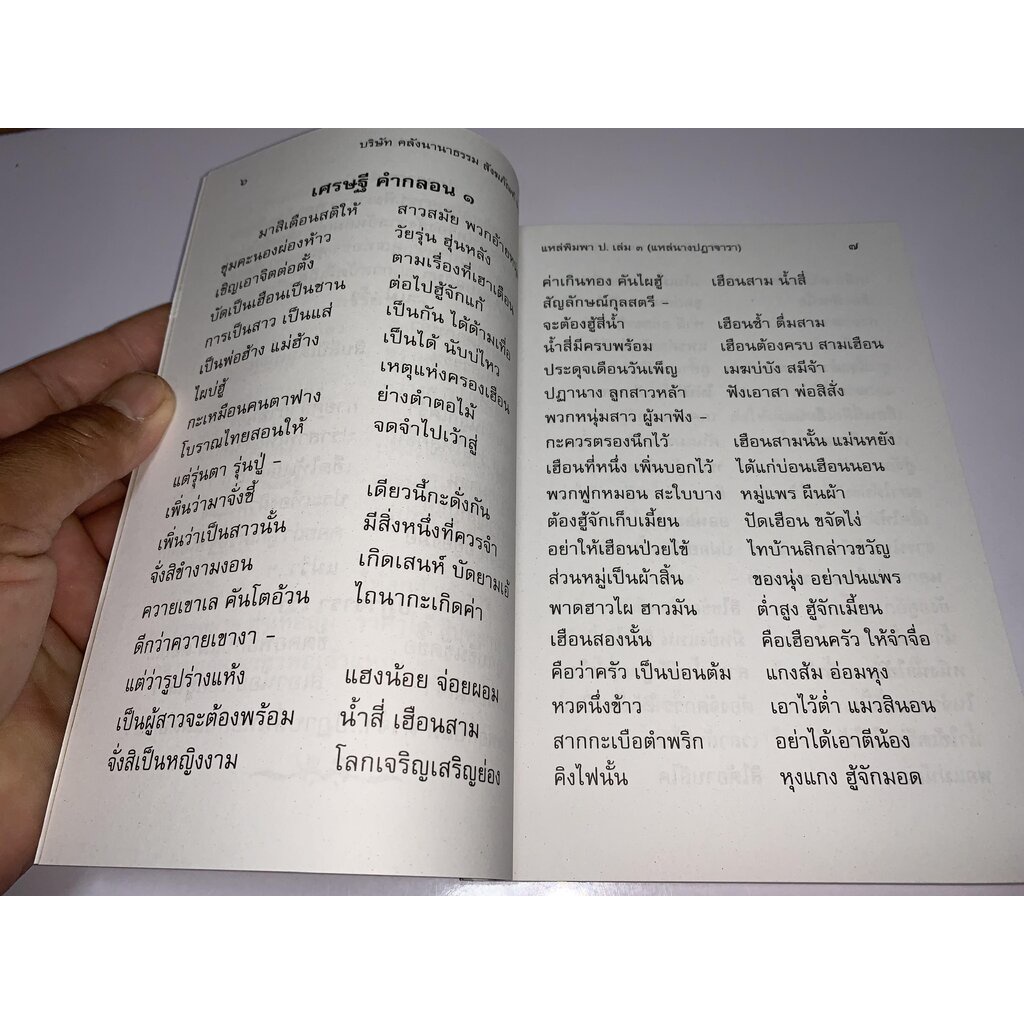 ๖
บริษัท คลังนานาธรรม
เศรษฐี คำกลอน ๑
มาสิเตือนสติให้ สาวสมัย พวกอ้าย
ชุมคะนองผ่องห้าว วัยรุ่น ฮุ่นหลัง
เชิญเอาจิตต่อตั้ง ตามเรื่องที่เฮาเตือน
บัดเป็นเฮือนเป็นชาน ต่อไปฮู้จักแก้
การเป็นสาว เป็นแส่ เป็นกัน ได้ด้ามเทื่อ
เป็นพ่อฮ้าง แม่ฮ้าง เป็นได้ นับบ่ไหว
ไผบ่ฮู้ เหตุแห่งครองเฮือน
กะเหมือนคนตาฟาง ย่างตำตอไม้
โบราณไทยสอนให้ จดจำไปเว้าสู่
แต่รุ่นตา รุ่นปู่ –
เพิ่นว่ามาจั่งซี้ เดียวนี้กะดั่งกัน
เพิ่นว่าเป็นสาวนั้น มีสิ่งหนึ่งที่ควรจำ
จั่งสิขำงามงอน เกิดเสน่ห์ บัดยามเอ้
ควายเขาเล คันโตอ้วน ไถนากะเกิดค่า
ดีกว่าควายเขางา –
แต่ว่ารูปร่างแห้ง แฮงน้อย จ่อยผอม
เป็นผู้สาวจะต้องพร้อม น้ำสี่ เฮือนสาม
จั่งสิเป็นหญิงงาม โลกเจริญเสริญย่อง
แหล่พิมพา ป. เล่ม ๓ (แหล่นางปฏาจารา) ๗
ค่าเกินทอง คันไผฮู้ เฮือนสาม น้ำสี่
สัญลักษณ์กุลสตรี –
จะต้องฮู้สี่น้ำ เฮือนซ้ำ ดื่มสาม
น้ำสี่มีครบพร้อม เฮือนต้องครบ สามเฮือน
ประดุจเดือนวันเพ็ญ เมฆบ่บัง สมีจ้า
ปฏานาง ลูกสาวหล้า ฟังเอาสา พ่อสิสั่ง
พวกหนุ่มสาว ผู้มาฟัง –
กะควรตรองนึกไว้ เฮือนสามนั้น แม่นหยัง
เฮือนที่หนึ่ง เพิ่นบอกไว้ ได้แก่บ่อนเฮือนนอน
พวกฟูกหมอน สะใบบาง หมู่แพร ผืนผ้า
ต้องฮู้จักเก็บเมี้ยน ปัดเฮือน ขจัดไง่
อย่าให้เฮือนป่วยไข้ ไทบ้านสิกล่าวขวัญ
ส่วนหมู่เป็นผ้าสิ้น ของนุ่ง อย่าปนแพร
พาดฮาวไผ ฮาวมัน ต่ำสูง ฮู้จักเมี้ยน
เฮือนสองนั้น คือเฮือนครัว ให้จำจื่อ
คือว่าครัว เป็นบ่อนต้ม แกงส้ม อ่อมหุง
หวดนึ่งข้าว เอาไว้ต่ำ แมวสินอน
สากกะเบือตำพริก อย่าได้เอาตีน้อง
คิงไฟนั้น หุงแกง ฮู้จักมอด